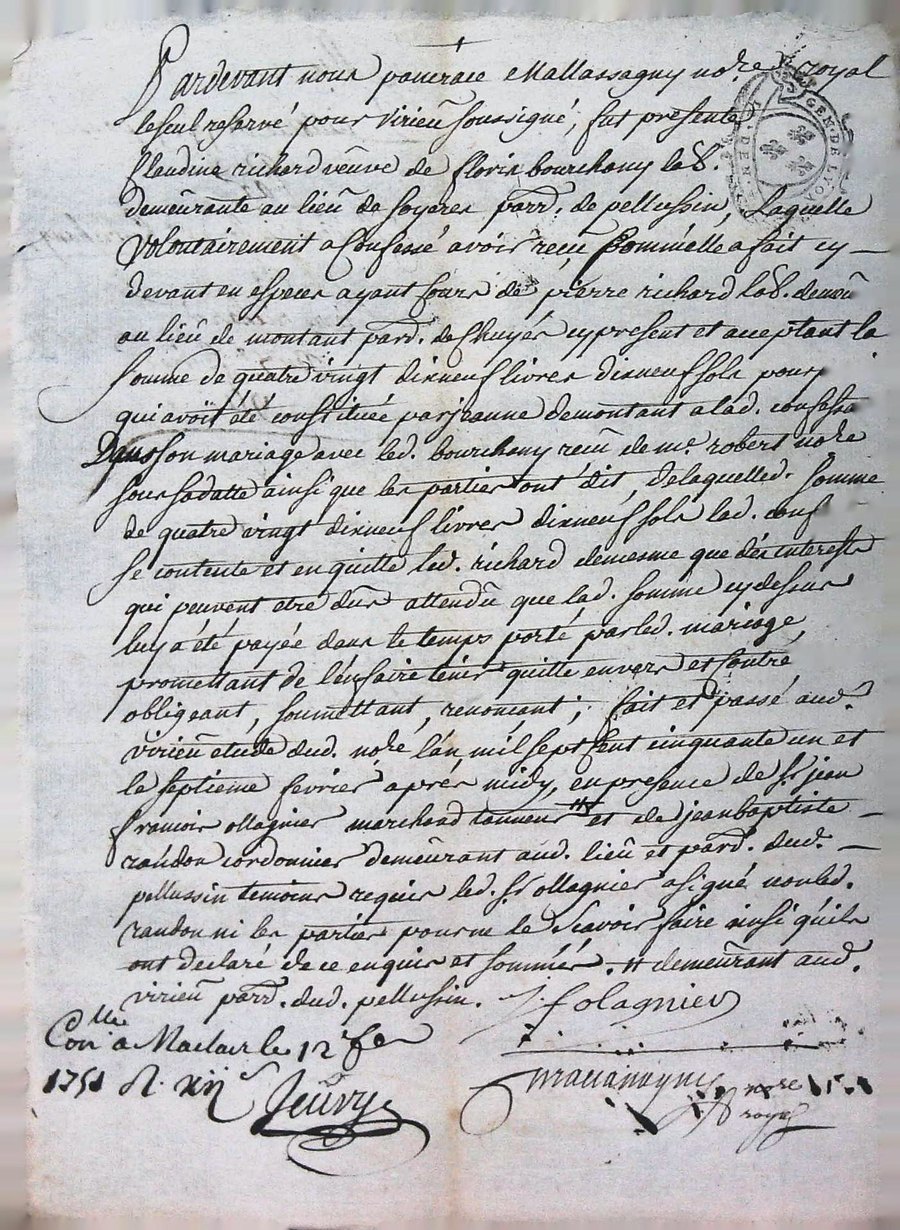 Pardevant nous pancrace Mallassagny no.re royal
le seul reservé pour virieu soussigné, fut presente
Claudine richard veuve de floris bourchany lab.
demeurante au lieu de soyeres parr. de pellussin, Laquelle
volontairement a confessé avoir reçeu comme elle a fait cy
devant en especes ayant cours de pierre richard lab. demeu
au lieu de montant parr. de Chuyés cy present et acceptant la
somme de quatre vingt dixneuf livres dixneuf sols pour
qui avoit été constituée par jeanne demontant a lad. confessa
Dans son mariage avec led. bourchany recu de me. robert no.re
sous sa datte ainsi que les parties ont dit, de laquelled. somme
de quatre vingt dixneuf livres dixneuf sols lad. conf
se contente et en quitte led. richard demesme que des interests
qui peuvent etre dus attendu que lad. somme cy dessus
luy a été payée dans le temps porté par led. mariage,
promettant de l'en faire tenir quitte envers et contre
obligeant, soumettant, renoncant; fait et passé aud.
virieu etude dud. no.re l'an mil sept cent cinquante un et
le septieme fevrier apres midy, en presence de sr. jean
francois ollagnier marchand tanneur # et de jean baptiste
randon cordonnier demeurant aud. lieu et parr. dud.
pellussin temoins requis led. sr. ollagnier a signé non led.
randon ni les parties pour ne le scavoir faire ainsi qu'ils
ont declaré de ce enquis et sommés. # demeurant aud.
virieu parr. dud. pellussin. J. f olagnier
Con.lle a Maclas le 12 fe
1751 R. xij s
no.re
royal
GEN. DE LYON